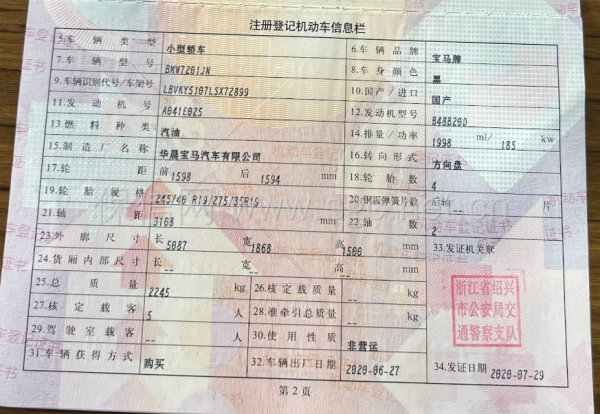 注册登记机动车信息栏
5.车辆类型 小型轿车 6.车辆品牌 宝马牌
7.车辆型号 BMW7201JN 8.车身颜色 黑
9.车辆识别代号/车架号 LBVKY5107LSX72899 10.国产/进口 国产
11.发动机号 A041E025 12.发动机型号 B48B20D
13.燃料种类 汽油 14.排量/功率 1998 ml/ 185 kw
15.制造厂名称 华晨宝马汽车有限公司 16.转向形式 方向盘
17.轮距 前1598 后1594 mm 18.轮胎数 4
19.轮胎规格 245/40 R19/275/35R19 20.钢板弹簧片数 后轴-- 片
21.轴距 3108 mm 22.轴数 2
23.外廓尺寸 长5087 宽1868 高1500 mm 33.发证机关章
24.货厢内部尺寸 长-- 宽-- 高-- mm
25.总质量 2245 kg 26.核定载质量 -- kg
27.核定载客 5 人 28.准牵引总质量 -- kg
浙江省绍兴
市公安局交
通警察支队
29.驾驶室载客 -- 人 30.使用性质 非营运
31.车辆获得方式 购买 32.车辆出厂日期 2020-06-27 34.发证日期 2020-07-29
第2页